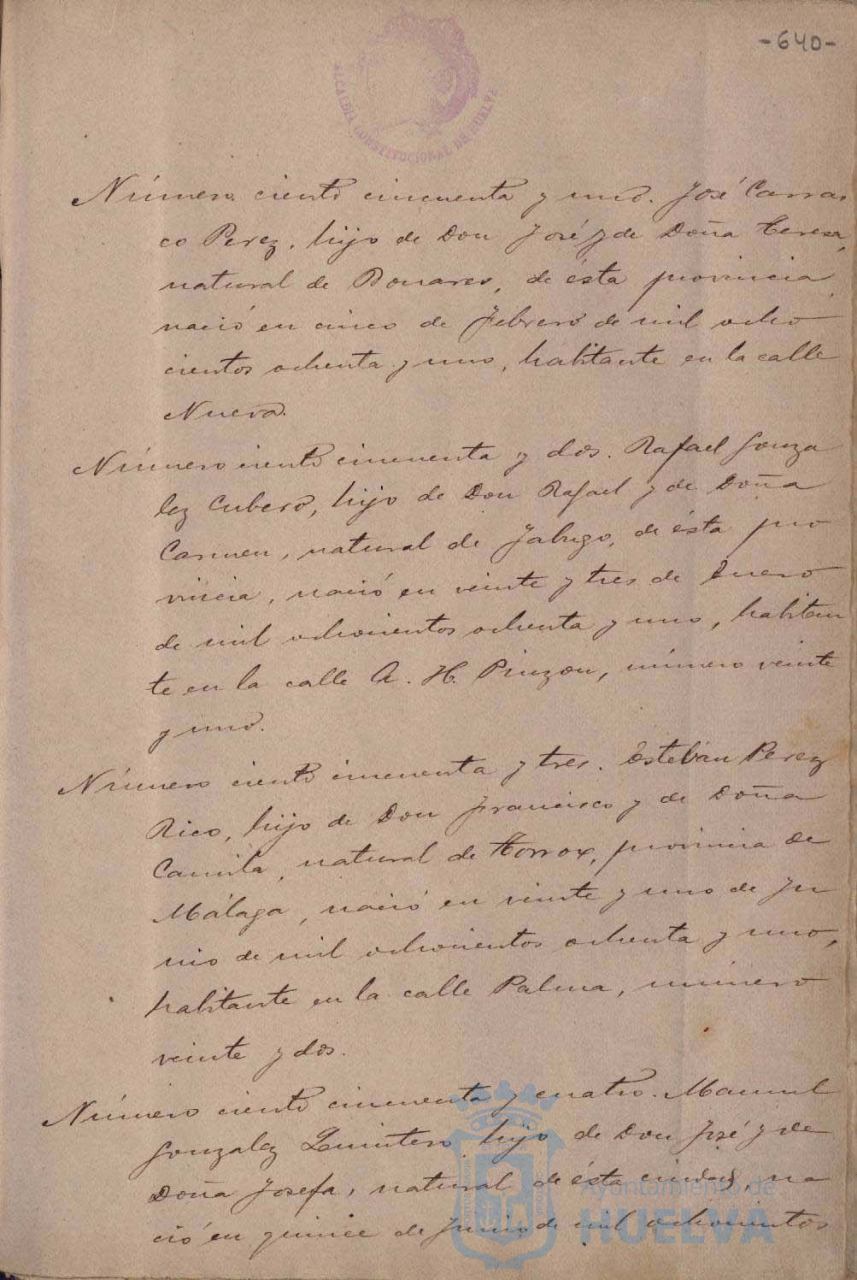 -640-
ALCALDÍA CONSTITUCIONAL DE HUELVA
Número ciento cincuenta y uno. José Carras
co Perez, hijo de Don José y de Doña Teresa,
natural de Bonares, de ésta provincia,
nació en cinco de Febrero de mil ocho
cientos ochenta y uno, habitante en la calle
Nueva.
Número ciento cincuenta y dos. Rafael Gonza
lez Cubero, hijo de Don Rafael y de Doña
Carmen, natural de Jabugo, de ésta pro
vincia, nació en veinte y tres de Enero
de mil ochocientos ochenta y uno, habitan
te en la calle A. H. Pinzon, número veinte
y uno.
Número ciento cincuenta y tres. Esteban Perez
Rico, hijo de Don Francisco y de Doña
Camila, natural de Torrox, provincia de
Málaga, nació en veinte y uno de Ju
nio de mil ochocientos ochenta y uno,
habitante en la calle Palma, número
veinte y dos.
Número ciento cincuenta y cuatro. Manuel
Gonzalez Quintero, hijo de Don José y de
Doña Josefa, natural de ésta ciudad, na
ció en quince de Junio de mil ochocientos
Ayuntamiento de
HUELVA